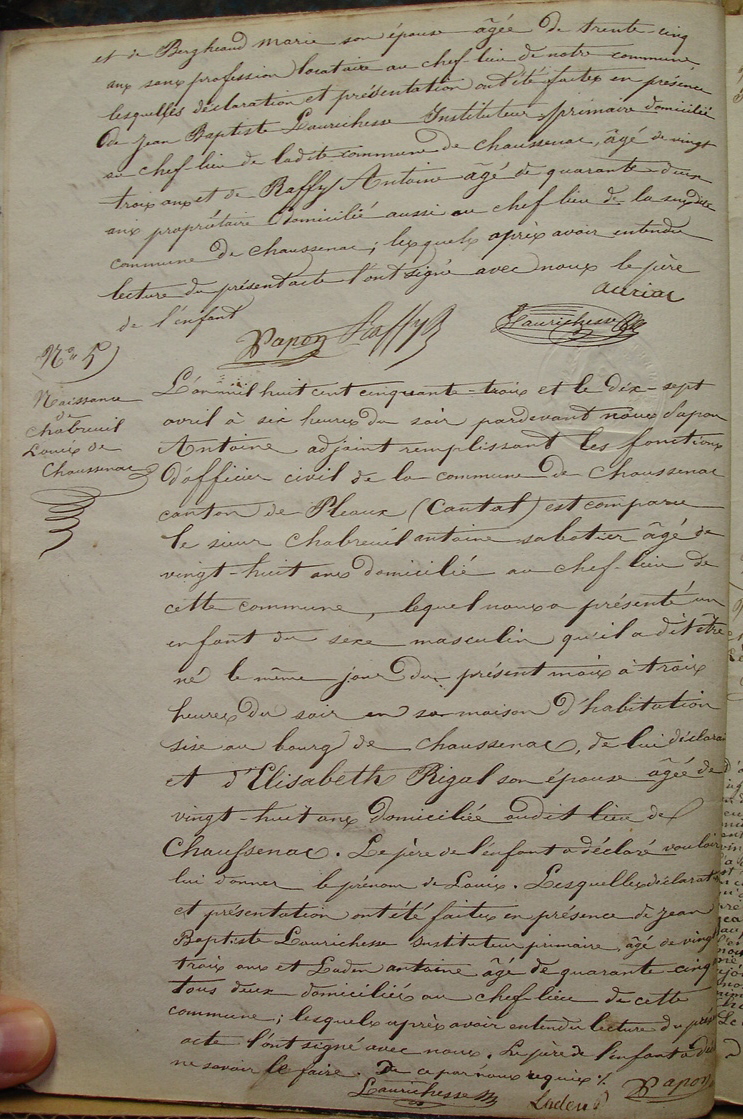 et de Bergheaud marie son épouse âgée de trente-cinq
ans sans profession locataire au chef lieu de notre commune
lesquelles déclaration et présentation ont été faites en présence
de Jean Baptiste Laurichesse Instituteur primaire domicilié
au chef lieu de ladite commune de chaussenac, âgé de vingt
trois ans et de Raffy Antoine âgé de quarante-deux
ans propriétaire domicilié aussi au chef lieu de la susdite
commune de chaussenac; lesquels après avoir entendu
lecture du présent acte l'ont signé avec nous le père
de l'enfant
auriac
Papon Raffy Laurichesse
N° 5
Naissance
de
Chabreuil
Louis de
Chaussenac
L'an mil huit cent cinquante-trois et le dix-sept
avril à six heures du soir pardevant nous Papon
Antoine adjoint remplissant les fonctions
d'officier civil de la commune de Chaussenac
canton de Pleaux (Cantal) est comparu
le sieur Chabreuil antoine sabotier âgé de
vingt-huit ans domicilié au chef-lieu de
cette commune, lequel nous a présenté un
enfant du sexe masculin qu'il a dit être
né le même jour du présent mois à trois
heures du soir en sa maison d'habitation
sise au bourg de chaussenac, de lui déclarant
et d'Elisabeth Rigal son épouse âgée de
vingt-huit ans domiciliée audit lieu de
Chaussenac. Le père de l'enfant a déclaré vouloir
lui donner le prénom de Louis. Lesquelles déclarati
et présentation ont été faites en présence de Jean
Baptiste Laurichesse instituteur primaire, âgé de vingt
trois ans et Laden antoine âgé de quarante-cinq
tous deux domiciliés au chef-lieu de cette
commune; lesquels après avoir entendu lecture du prés
acte l'ont signé avec nous. Le père de l'enfant a dit
ne savoir le faire. De ce par nous requis
Laurichesse Papon